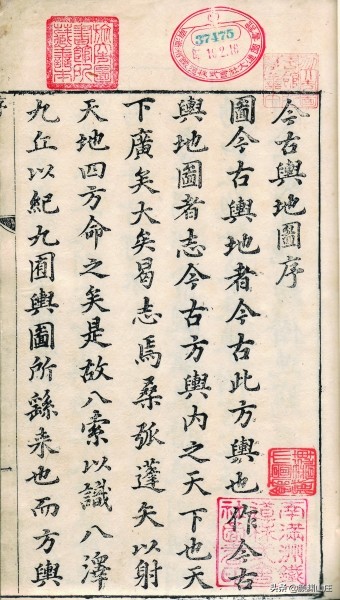 今古輿地圖序
圖今古輿地者今古此方輿也作今古
輿地圖者志今古方輿內之天下也天
下廣矣大矣曷志焉桑弧蓬矢以射
天地四方命之矣是故八索以識八澤
九丘以紀九囿輿圖所繇来也而方輿
序
37475
南滿洲鐵道株式會社
头条
山庄